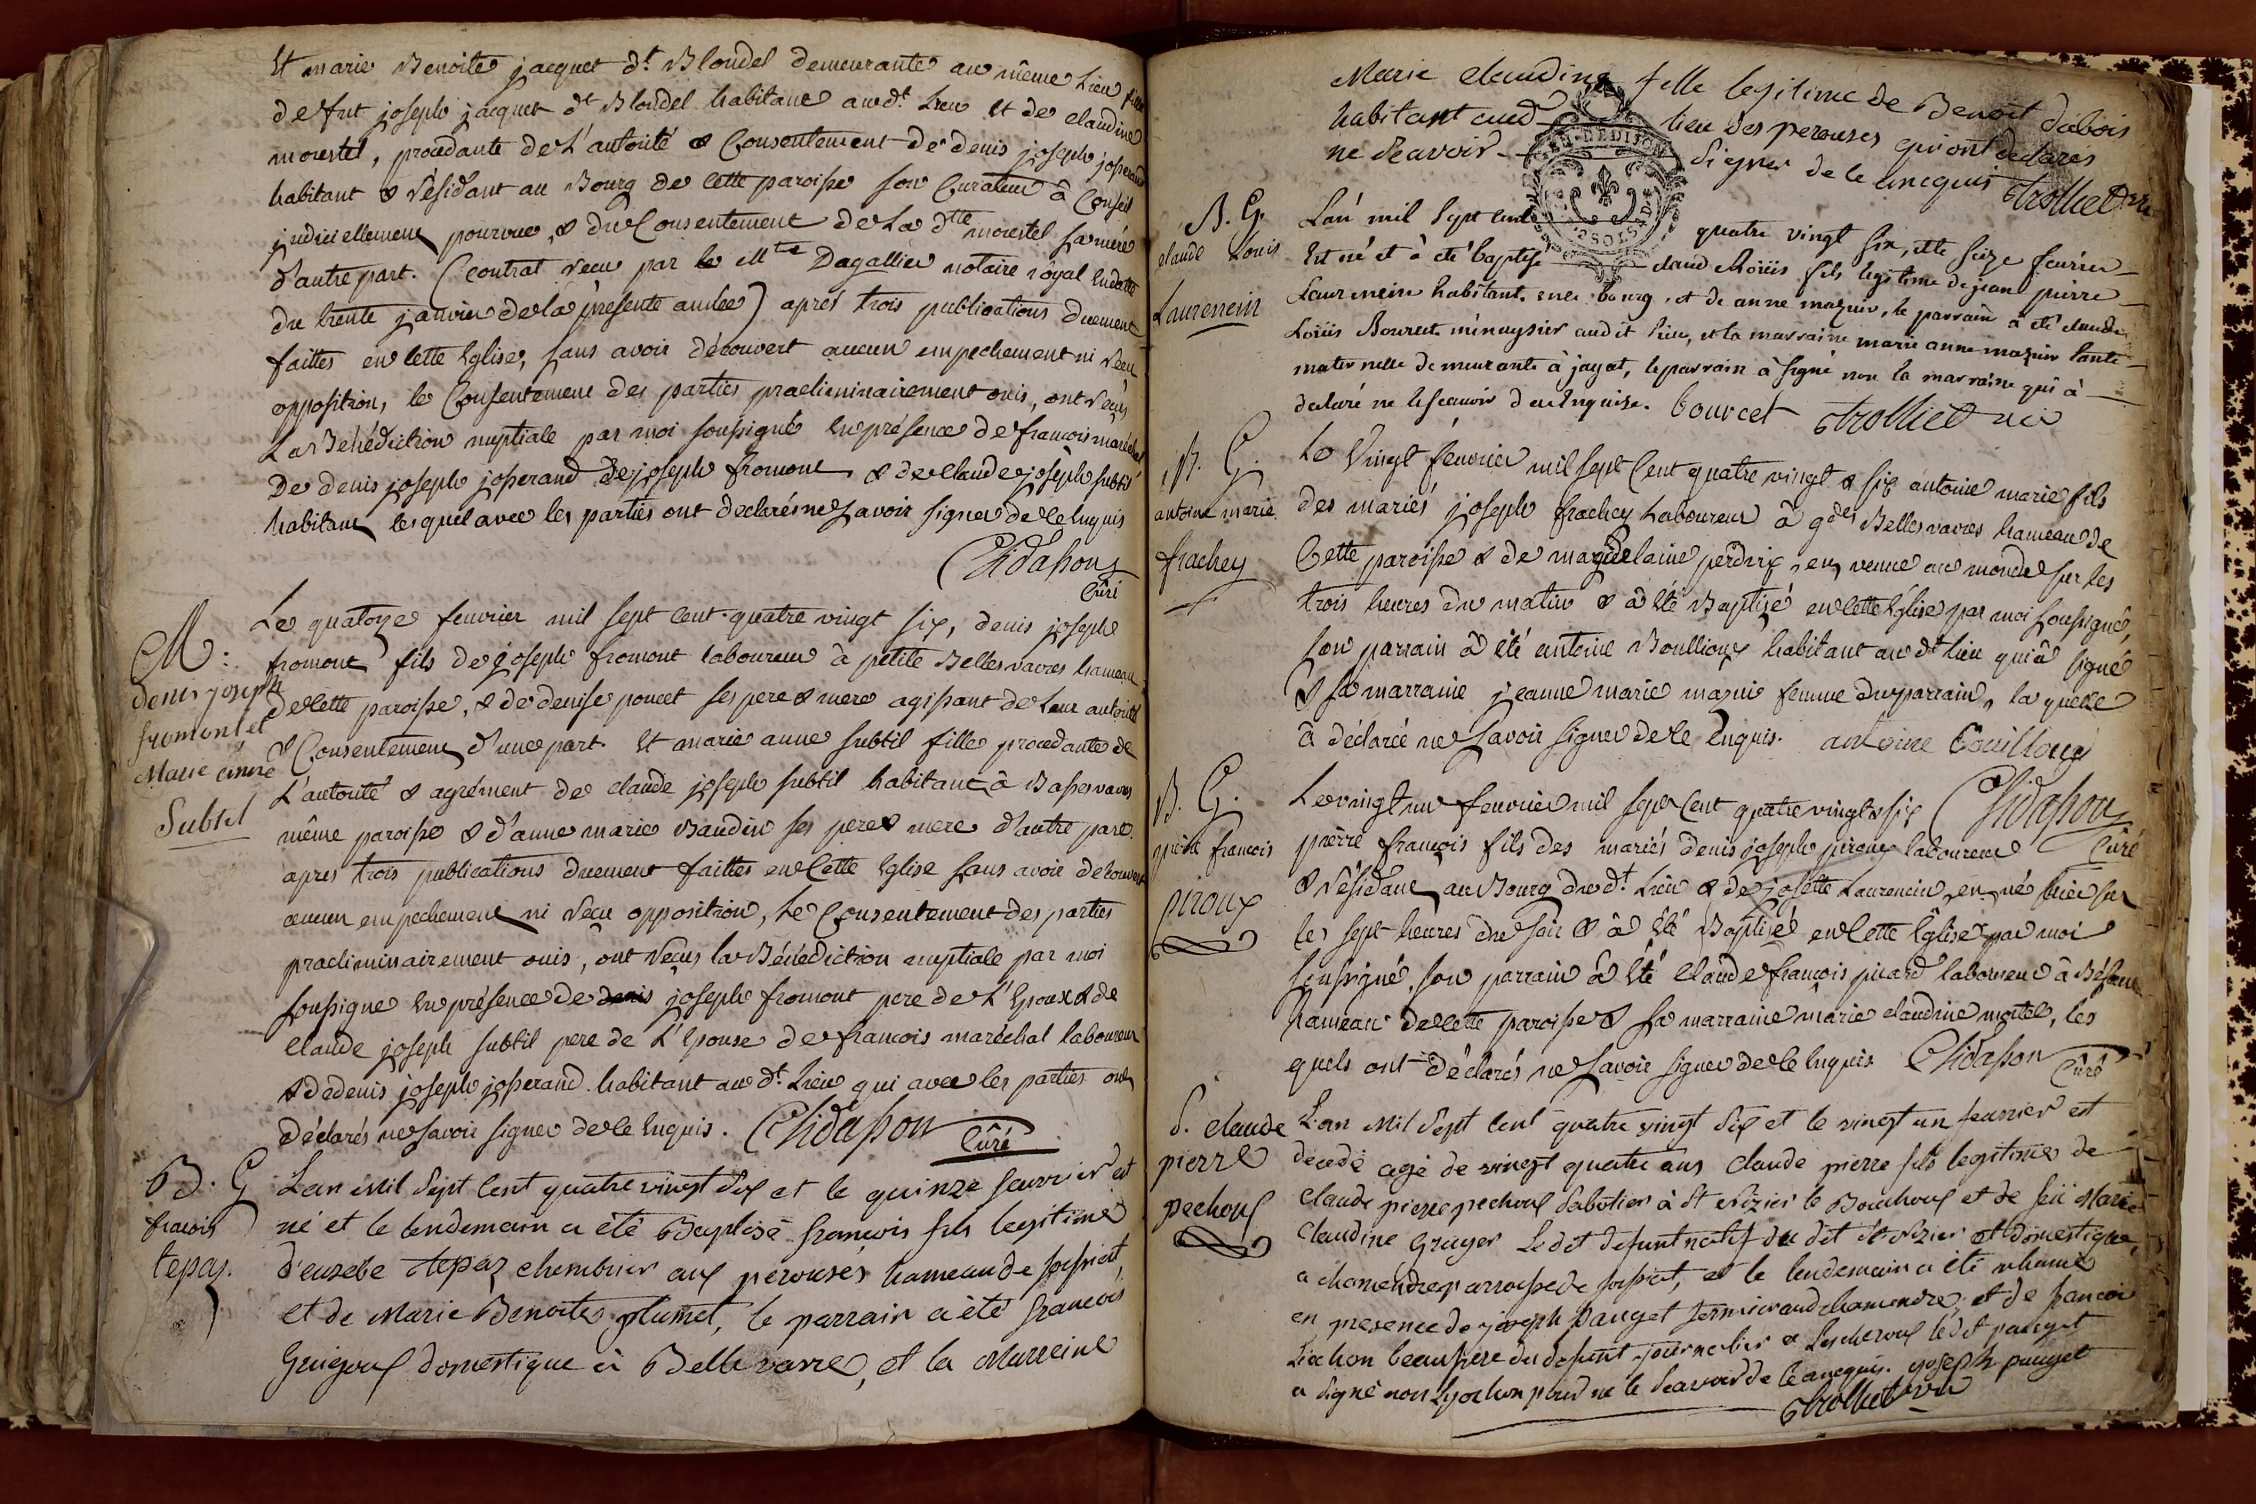 Et marie Benoite jacquet dt Blondel demeurante au même Lieu fille
de fut joseph jacquet dt Blondel habitant audt Lieu et de claudine
morestel, procedante de L'autorité & Consentement de denis joseph josserand
habitant & résidant au Bourg de cette paroisse son Curateur à Conseil
judiciellement pourvue, & du Consentement de La dtte morestel sa mère
d'autre part. (contrat recu par le Mtre Dagallier notaire royal
du trente janvier de la présente année) apres trois publications duement
faittes en cette Eglise, sans avoir découvert aucun empechement ni recu
opposition, le Consentement des parties praeliminairement ouis, ont reçus
La Bénédiction nuptiale par moi soussigné en présence de francois maréchal
De denis joseph josserand de joseph fromont & de claude joseph subtil
habitant lesquel avec les parties ont declarés ne savoir signer de ce Enquis
Chidasson
Curé
M:
denis joseph
fromont et
Marie anne
Subtil
Le quatorze fevrier mil sept cent quatre vingt six, denis joseph
fromont fils de joseph fromont laboureur à petite Bellesvavres hameau
de cette paroisse, & de denise poncet ses pere & mere agissant de Leur autorité
& Consentement d'une part. Et marie anne subtil fille procedante de
L'autorité & agrément de claude joseph subtil habitant à Bassesvavres
même paroisse & d'anne marie Baudin ses pere & mere d'autre part.
apres trois publications duement faittes en Cette Eglise sans avoir découvert
aucun empechement ni reçu opposition, Le Consentement des parties
praeliminairement ouis, ont reçus la Bénédiction nuptiale par moi
soussigne en présence de denis joseph fromont pere de L'Epoux & de
claude joseph subtil pere de L'Epouse de francois maréchal laboureur
& de denis joseph josserand habitant audt Lieu qui avec les parties ont
déclarés ne savoir signer de ce Enquis. Chidasson Curé
B. G
francois
tepaz.
Lan Mil Sept Cent quatre vingt Six et le quinze fevrier est
né et le lendemain a été Baptisé francois fils legitime
d'eusebe tepaz chembrier aux perouses hameau de
et de Marie Benoite plumet, le parrain a été francois
Guigoux domestique à Bellevavre, et la Marreine
Marie claudine fille legitime de Benoit dubois
habitant aud lieu des perouses qui ont declarés
ne scavoir signer de ce enquis Trolliet vic
DEDIT
SOLS
B. G.
claude Louis
Laurencin
Lan mil sept cent quatre vingt six, et le seize fevrier
Est né et à été baptisé claud Loüis fils legitime de jean pierre
Laurencin habitant en ce bourg, et de anne mazuir, le parrain à été claude
Loüis Bourcet menuysier au dit lieu, et la marraine marie anne mazuir tante
maternelle demeurante à jayat, le parrain à signé non la marraine qui à
declaré ne le scavoir de ce Enquise. bourcet Trolliet vic
B. G.
antoine marie
frachey
Le Vingt fevrier mil sept Cent quatre vingt & six antoine marie fils
des mariés joseph frachey Laboureur à gdes Bellesvavres hameau de
Cette paroisse & de magdelaine perdrix, en venue au monde sur les
trois heures du matin & à été Baptizé en cette Eglise par moi soussigné,
son parrain à été antoine Boullioux habitant audt Lieu qui à signé
& sa marraine jeanne marie mazuir femme du parrain, la quelle
à déclarée ne savoir signer de ce Enquis. antoine Bouilloux
Chidasson
Curé
B. G.
pierre francois
piroux
Le vingt un fevrier mil sept Cent quatre vingt & six
pierre francois fils des mariés denis joseph piroux laboureur
& résidant au Bourg dudt Lieu & de josette Laurencin, en né hier sur
les sept heures du soir & à été Baptisé en cette Eglise par moi
soussigné, son parrain à été claude francois picard laboureur à
hameau de cette paroisse & sa marraine marie claudine moitel, les
quels ont déclarés ne savoir signer de ce Enquis Chidasson Curé
S. claude
pierre
pechoux
L'an Mil Sept Cent quatre vingt Six et le vingt un fevrier est
decedé agé de vingt quatre ans claude pierre fils legitime de
Claude pierre pechoux sabotier à St Nizier le Bouchoux et de feü Marie
Claudine Gruyer Le dit defunt natif du dit St Nizier et domestique
a chamendre parroisse de et le lendemain a été inhumé
en presence de joseph pauget fermier au dit chamendre, et de francoi
Liochon beaufrere du defunt journalier a Lescheroux le dit pauget
a signé non Lyochon pour ne le scavoir de ce enquis. joseph pauget
Trolliet vic